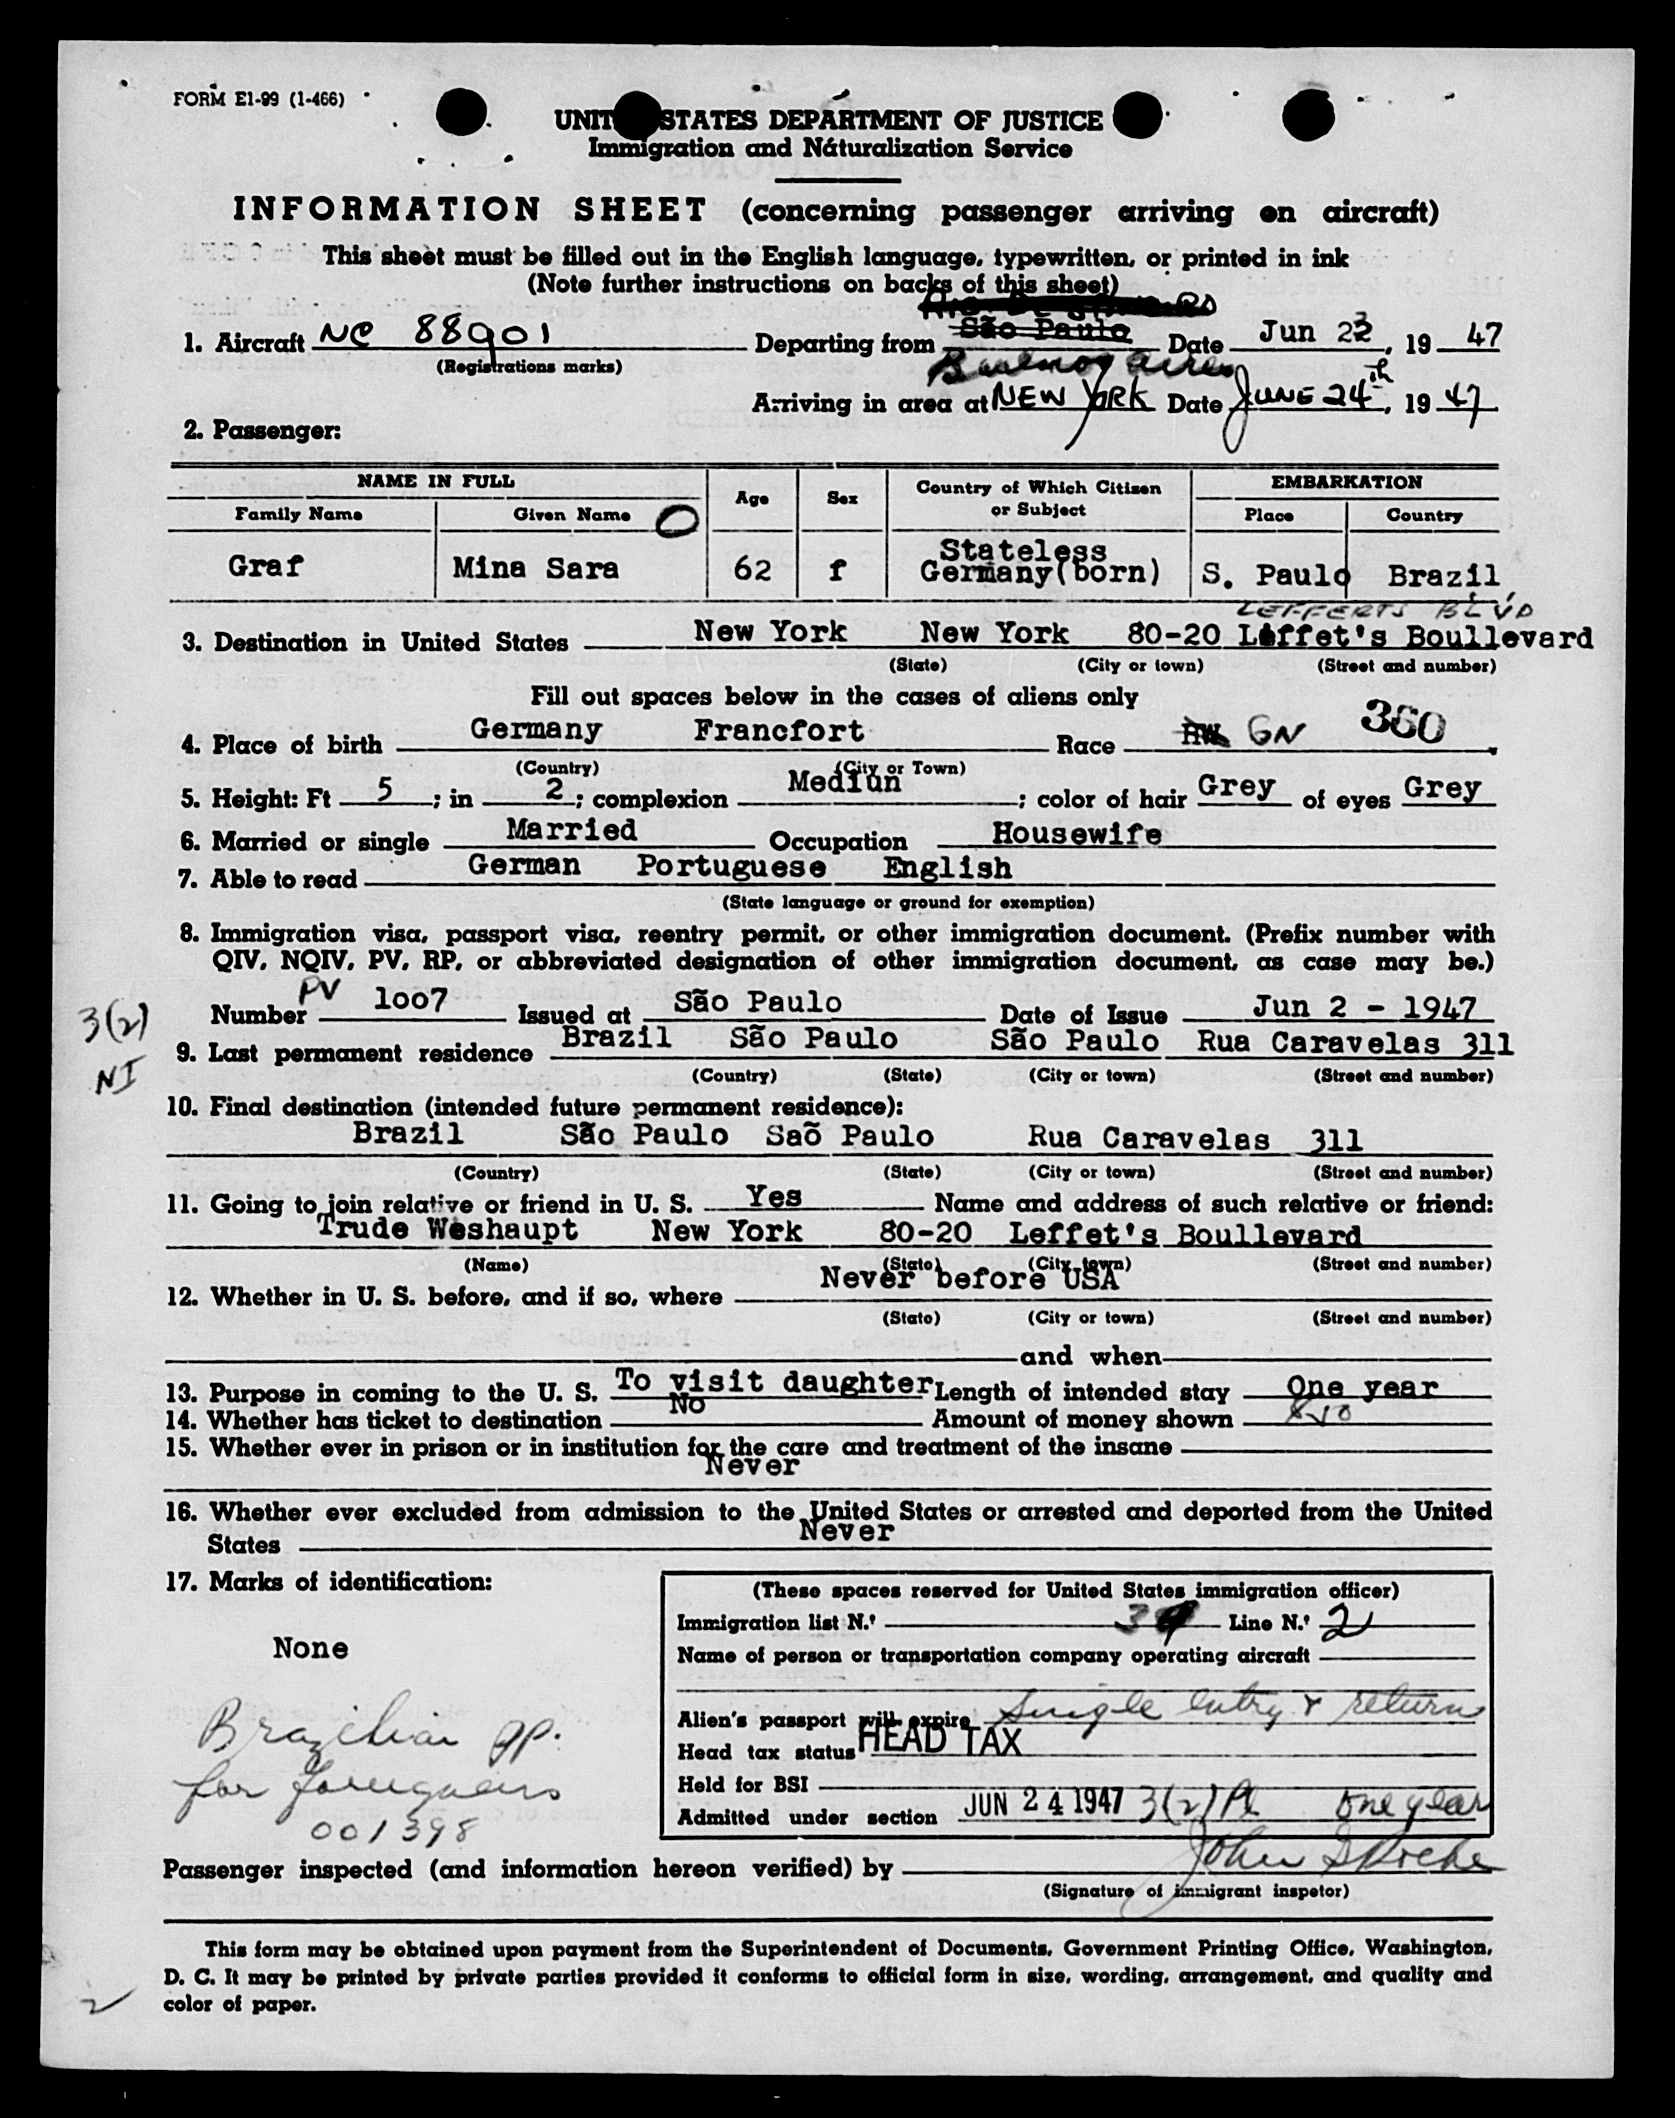 FORM E1-99 (1-466)
UNIT STATES DEPARTMENT OF JUSTICE
Immigration and Naturalization Service
INFORMATION SHEET (concerning passenger arriving on aircraft)
This sheet must be filled out in the English language, typewritten, or printed in ink
(Note further instructions on backs of this sheet)
1. Aircraft NC 88901 Departing from São Paulo Buenos Aires Date Jun 23, 19 47
(Registrations marks)
Arriving in area at NEW YORK Date JUNE 24th, 19 47
2. Passenger:
NAME IN FULL Age Sex Country of Which Citizen or Subject EMBARKATION
Family Name Given Name O Place Country
Graf Mina Sara 62 f Stateless Germany(born) S. Paulo Brazil
LEFFERTS BLVD
3. Destination in United States New York New York 80-20 Leffet's Boullevard
(State) (City or town) (Street and number)
Fill out spaces below in the cases of aliens only
4. Place of birth Germany Francfort Race GN 360
(Country) (City or Town)
5. Height: Ft 5; in 2; complexion Mediun; color of hair Grey of eyes Grey
6. Married or single Married Occupation Housewife
7. Able to read German Portuguese English
(State language or ground for exemption)
8. Immigration visa, passport visa, reentry permit, or other immigration document. (Prefix number with
QIV, NQIV, PV, RP, or abbreviated designation of other immigration document, as case may be.)
3(2) NI
Number PV loo7 Issued at São Paulo Date of Issue Jun 2 - 1947
9. Last permanent residence Brazil São Paulo São Paulo Rua Caravelas 311
(Country) (State) (City or town) (Street and number)
10. Final destination (intended future permanent residence):
Brazil São Paulo Saõ Paulo Rua Caravelas 311
(Country) (State) (City or town) (Street and number)
11. Going to join relative or friend in U. S. Yes Name and address of such relative or friend:
Trude Weshaupt New York 80-20 Leffet's Boullevard
(Name) (State) (City town) (Street and number)
12. Whether in U. S. before, and if so, where Never before USA
(State) (City or town) (Street and number)
and when
13. Purpose in coming to the U. S. To visit daughter Length of intended stay One year
14. Whether has ticket to destination No Amount of money shown
15. Whether ever in prison or in institution for the care and treatment of the insane
Never
16. Whether ever excluded from admission to the United States or arrested and deported from the United
States Never
17. Marks of identification:
None
Brazilian pp.
for foreigners
001398
(These spaces reserved for United States immigration officer)
Immigration list N.º 39 Line N.º 2
Name of person or transportation company operating aircraft
Alien's passport will expire Single entry & return
Head tax status HEAD TAX
Held for BSI
Admitted under section JUN 24 1947 3(2) Pl One year
Passenger inspected (and information hereon verified) by John S Roche
(Signature of immigrant inspetor)
This form may be obtained upon payment from the Superintendent of Documents, Government Printing Office, Washington,
D. C. It may be printed by private parties provided it conforms to official form in size, wording, arrangement, and quality and
color of paper.
2